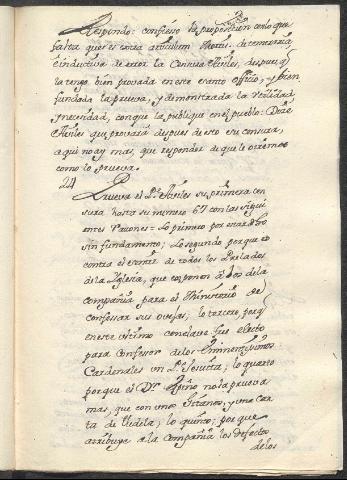 Respondo: confieso la proposicion conlo que
falta, que es contra articulum Mortis. de temeraria,
è inductiva de error la Censura Aviles, despues q̃
la tengo bien provada en este Santo Officio, y bien
fundada la prueva, y demonstrada la Utilidad
y necesidad, con que la publique en el pueblo: Dize
Aviles que provarà despues de esto su censura,
aqui no ay mas, que responder de que le oiremos
como lo prueva.
24
Prueva el Pe. Aviles su primera cen
sura hasta su numero 67 con las sigui
entes razones = Lo primero por estar dho
sin fundamento; Lo segundo porque es
contra el sentir de todos los Prelados
de la Iglesia, que exponen à los de la
compañia para el Ministerio de
confessar sus ovejas; lo tercero, porq̃
en este ultimo conclave fue electo
para Confesor de los Eminentissimos
Cardenales un Pe. Jesuita; lo quarto
porque el Dr. Espino no la prueva
mas, que con unos Gitanos, y una car
ta de Tudela; lo quinto, porque
atribuye a la Compañia los defectos
de los